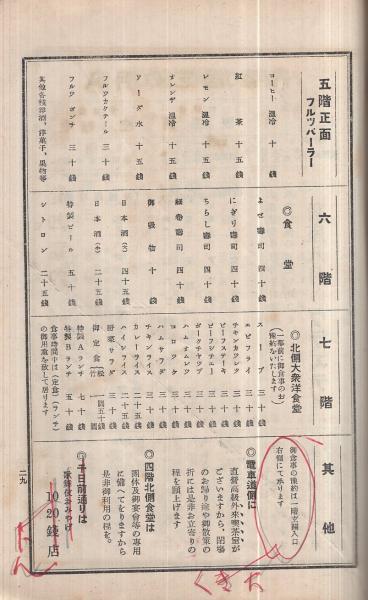 五階正面
フルツパーラー
コーヒー 温冷 十銭
紅茶 十五銭
レモン 温冷 十五銭
オレンヂ 温冷 十五銭
ソーダ水 十五銭
フルツカクテール 三十銭
フルツポンチ 三十銭
其他各種洋酒、洋菓子、果物等
六階
◎食堂
よせ壽司 四十銭
にぎり壽司 四十銭
ちらし壽司 四十銭
四十銭
御吸物 十銭
日本酒(大) 四十五銭
日本酒(小) 二十銭
特製ビール 五十銭
シトロン 二十五銭
七階
◎北側大衆洋食堂
(一幕前に御食事のお
豫約をいたします)
スープ 三十銭
エビフライ 三十銭
チキンカツレツ 三十銭
ビーフステーキ 三十銭
ビーフシチュー 三十銭
ポークチヤツプ 三十銭
ハムオムレツ 三十銭
コロツケ 三十銭
ハムサラダ 三十銭
チキンライス 三十銭
カレーライス 二十五銭
ハイシライス 二十五銭
野菜サラダ 二十銭
御定食 松 一圓五十銭
竹 一圓
特製Aランチ 七十銭
特製Bランチ 五十銭
食事時間には(定食)(ランチ)
の御用意を致して居ります
其他
御食事の豫約は一階玄關入口
右側にて承ります
◎電車道側に
直營高級外來喫茶室が
ございますから、閉場
のお歸り途や御散策の
折には是非お立寄りの
程を願上げます
◎四階北側食堂は
團體及御宴會等の専用
に備へてをりますから
是非御利用の程を。
◎千日前通りは
歌舞伎おみやげ
10 20 錢店
二九